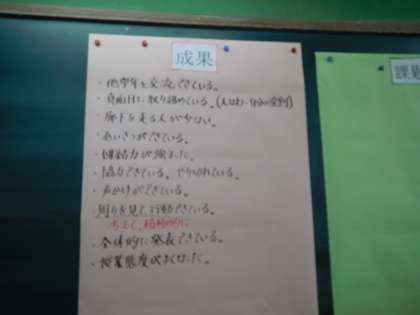 成果
・他学年と交流できている。
・真面目に取り組めている。
・廊下を走る人が少ない。
・あいさつができている。
・団結力が強まった。
・協力できている。
・声かけができている。
周りを見て行動できている。
積極的に
・全体的に発表できている。
・授業態度がよくなった。
課題